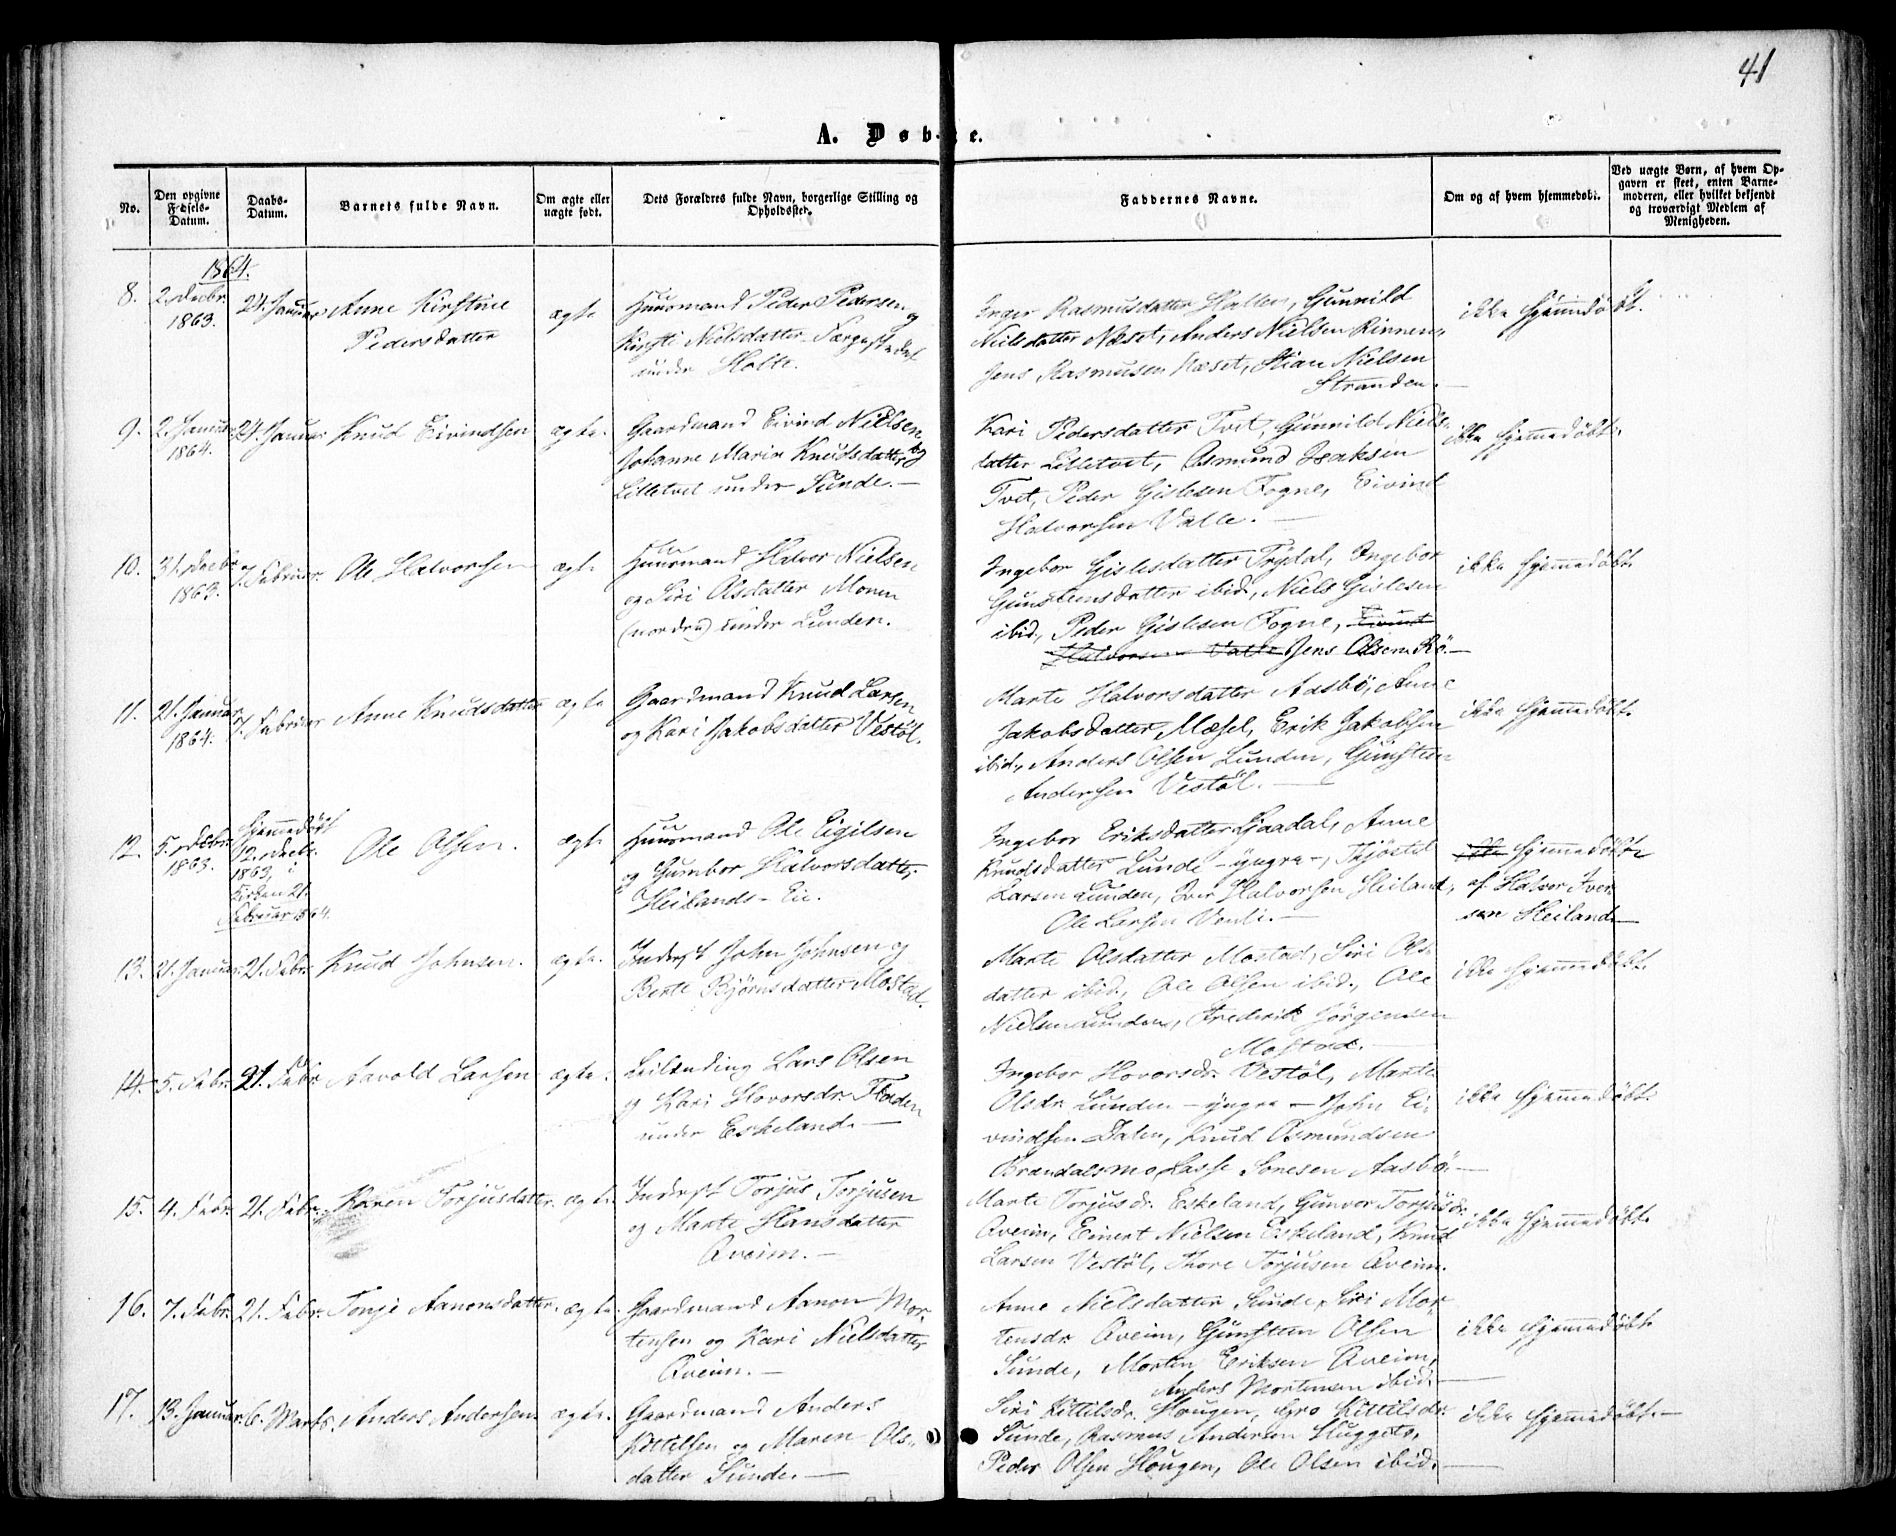 41
A. Døbte.
No.
Den opgivne Fødsels-Datum.
Daabs-Datum.
Barnets fulde Navn.
Om ægte eller uægte født.
Dets Forældres fulde Navn, borgerlige Stilling og Opholdssted.
Faddernes Navne.
Om og af hvem hjemmedøbt.
Ved uægte Børn, af hvem Opgaven er skeet, enten Barnemoderen, eller hvilket bekjendt og troværdigt Medlem af Menigheden.
1864.
8. 2. Decbr. 1863. 24. Januar Anne Kirstine Pedersdatter ægte
Huusmand Peder Pedersen og
Kirsti Nielsdatter Færgestedet
under Holte.
Inger Rasmusdatter Holte, Gunnild
Nielsdatter Næset, Anders Nielsen Rinnen,
Jens Rasmusen Næset, Stian Nielsen
Stranden.
ikke hjemmedøbt.
9. 2. Januar 1864. 24. Januar Knud Eivindsen ægte.
Gaardmand Eivind Nielsen og
Johanne Maria Knudsdatter
Lilletvet under Sunde.
Kari Pedersdatter Tvet, Gunnild Niels-
datter Lilletvet, Osmund Isaksen
Tvet, Peder Gislesen Fogne, Eivind
Halvorsen Valle.
ikke hjemmedøbt.
10. 31. Decbr. 1863. 7. Februar. Ole Halvorsen ægte
Huusmand Halvor Nielsen
og Siri Olsdatter Monen
(nordre) under Lunden.
Ingebor Gislesdatter Trydal, Ingebor
Gunstensdatter ibid, Niels Gislesen
ibid, Peder Gislesen Fogne, Eivind
Halvorsen Valle Jens Olsen Rö.
ikke hjemmedøbt.
11. 21. Januar 1864. 7. Februar Anne Knudsdatter ægte
Gaardmand Knud Larsen
og Kari Jakobsdatter Vestöl.
Marte Halvorsdatter Aasbö, Anne
Jakobsdatter Mæsel, Erik Jakobsen
ibid, Anders Olsen Lunden, Gunsten
Andersen Vestöl.
ikke hjemmedøbt.
12. 5. Decbr. 1863. Hjemmedöbt
12. Decbr.
1863, i
Kirken 21.
Februar 1864.
Ole Olsen. ægte
Huusmand Ole Eigilsen
og Gunbor Halvorsdatter
Heilands-Eie.
Ingebor Eriksdatter Gjaadal, Anne
Knudsdatter Lunde - yngre -, Kjöstel
Larsen Lunden, Iver Halvorsen Heiland,
Ole Larsen Venli.
ikke hjemmedøbt
af Halvor Iver-
sen Heiland.
13. 21. Januar. 21. Febr. Knud Johnsen. ægte.
Inderst John Johnsen og
Berte Björnsdatter Mostad.
Marte Olsdatter Mostad, Siri Ols-
datter ibid, Ole Olsen ibid., Ole
Nielsen Lunden, Frederik Jörgensen
Mostad.
ikke hjemmedøbt.
14. 5. Febr. 21. Febr Aavold Larsen ægte.
Leilending Lars Olsen
og Kari Hovorsdr. Floden
under Eskeland.
Ingebor Hovorsdr. Vestöl, Marte
Olsdr. Lunden - yngre - John Ei-
vindsen Dalen, Knud Osmundsen
Brandalsmo, Lasse Sonesen Aasbö.
ikke hjemmedøbt.
15. 4. Febr. 21. Febr. Karen Torjusdatter. ægte.
Inderst Torjus Torjusen
og Marte Hansdatter
Aveim.
Marte Torjusdr. Eskeland, Gunvor Torjusdr.
Aveim, Einert Nielsen Eskeland, Knud
Larsen Vestöl, Thore Torjusen Aveim.
ikke hjemmedøbt.
16. 7. Febr. 21. Febr. Tonje Aanonsdatter. ægte.
Gaardmand Aanon Mor-
tensen og Kari Nielsdatter
Aveim.
Anne Nielsdatter Sunde, Siri Mor-
tensdr. Aveim, Gunsten Olsen
Sunde, Morten Eriksen Aveim,
Anders Mortensen ibid.
ikke hjemmedøbt.
17. 13. Januar. 6. Marts. Anders Andersen ægte.
Gaardmand Anders
Kittilsen og Maren Ols-
datter Sunde.
Siri Kittilsdr. Hougen, Gro Kittilsdr.
Sunde, Rasmus Andersen Huggeto,
Peder Olsen Hougen, Ole Olsen ibid.
ikke hjemmedøbt.